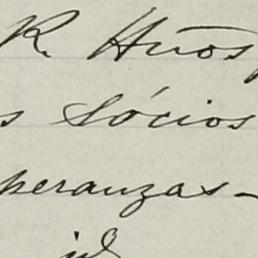 R. Hños
s Sócios
peranzas-
id